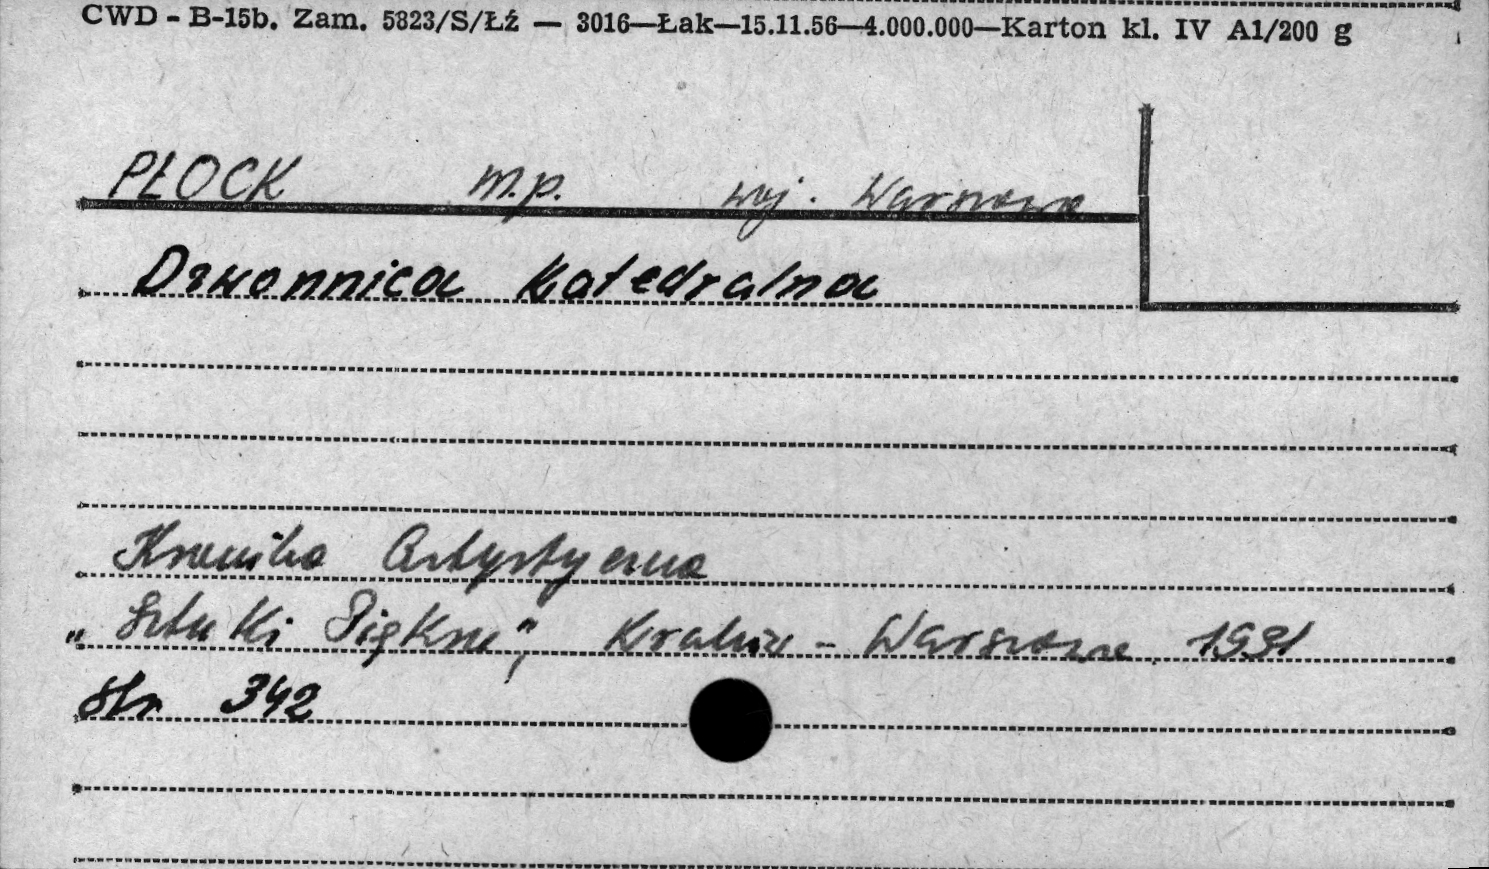 CWD - B-15b. Zam. 5823/S/Łź — 3016—Łak—15.11.56—4.000.000—Karton kl. IV A1/200 g
PŁOCK m.p. woj. Warszawa
Dzwonnica Katedralna
Kronika Artystyczna
„Sztuki Piękne", Kraków - Warszawa 1931
str 342